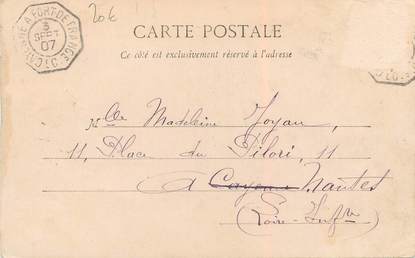 20€
CARTE POSTALE
Ce côté est exclusivement réservé à l'adresse
CAYENNE A FORT-DE-FRANCE
3
SEPT
07
Mlle Madeleine Joyau,
11, Place du Pilori, 11
A Cayenne Nantes
(Loire-Infre)